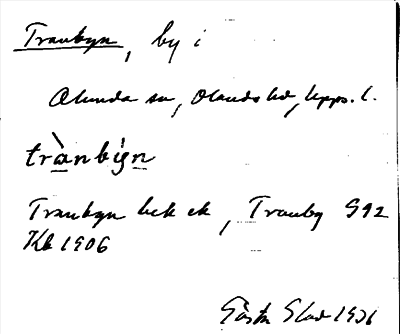 Tranbyn, by i
Alunda sn, Olands hd, Upps. l.
trànbýn
Tranbyn bek ek, Tranby G92
Kb 1906
Gösta Elad 1936